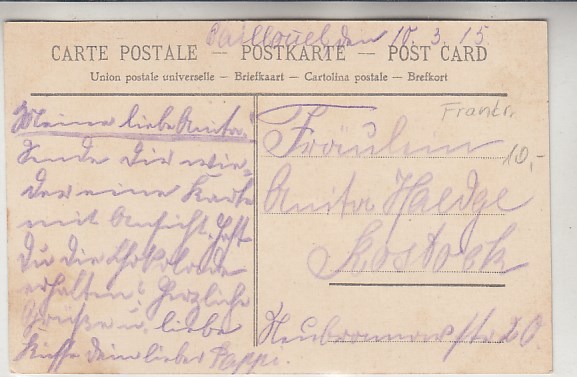 Caillouel den 10.3.15
CARTE POSTALE — POSTKARTE — POST CARD
Union postale universelle – Briefkaart – Cartolina postale – Brefkort
Meine liebe Anita!
Sende Dir wie-
der eine Karte
mit Ansicht. Hast
Du die Chokolade
erhalten? Herzliche
Grüße u. liebe
Küsse Dein lieber Pappi.
Frankr.
10,-
Fräulein
Anita Haedge
Rostock
str 20